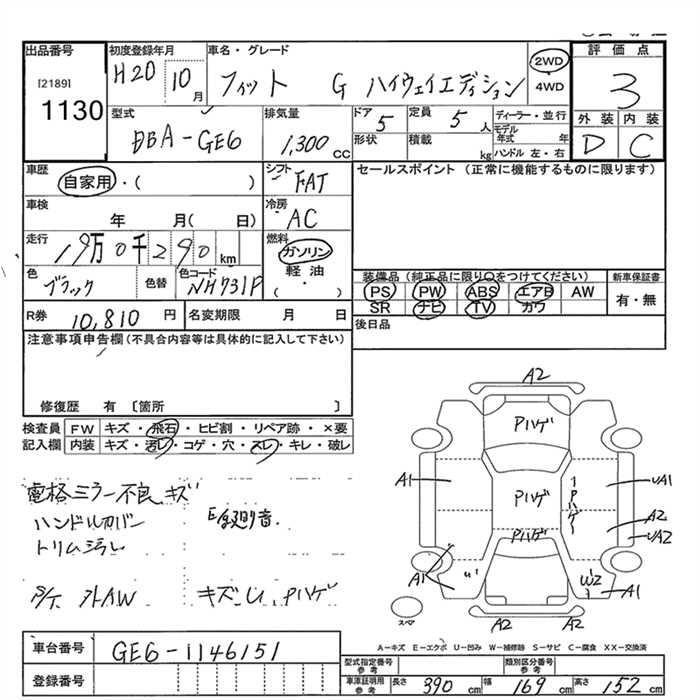 出品番号
[2189]
1130
初度登録年月
H20 10月
車名・グレード
フィット G ハイウェイエディション
2WD
4WD
評価点
3
外装 内装
D C
型式
DBA-GE6
排気量
1,300 cc
ドア
5
形状
定員
5 人
積載
kg
ディーラー・並行
モデル年式 年
ハンドル 左・右
車歴
自家用・( )
シフト
FAT
車検
年 月( 日)
冷房
AC
走行
19万0千290 km
燃料
ガソリン
軽油
( ・ )
色
ブラック
色替
色コード
NH731P
R券 10,810 円
名変期限 月 日
セールスポイント (正常に機能するものに限ります)
装備品(純正品に限り○をつけてください)
PS PW ABS エアB AW
SR ナビ TV カワ
新車保証書
有・無
後日品
注意事項申告欄(不具合内容等は具体的に記入して下さい)
修復歴 有〔箇所 〕
検査員記入欄
FW キズ・飛石・ヒビ割・リペア跡・×要
内装 キズ・汚レ・コゲ・穴・スレ・キレ・破レ
電格ミラー不良 キズ
ハンドルカバー
トリム汚レ
異音
社外AW
キズ U Pハゲ
A2
Pハゲ
A1
Pハゲ
Pハゲ
UA1
A2
UA2
Pハゲ
A1
W2
A1
スペア
A2 A2
A-キズ E-エクボ U-凹み W-補修跡 S-サビ C-腐食 XX-交換済
車台番号 GE6-1146151
登録番号
型式指定番号 参考
類別区分番号 参考
車庫証明用 参考 長さ 390 cm 幅 169 cm 高さ 152 cm